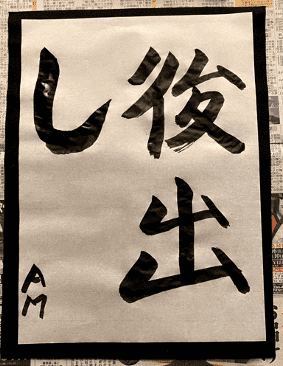 後出
し
AM